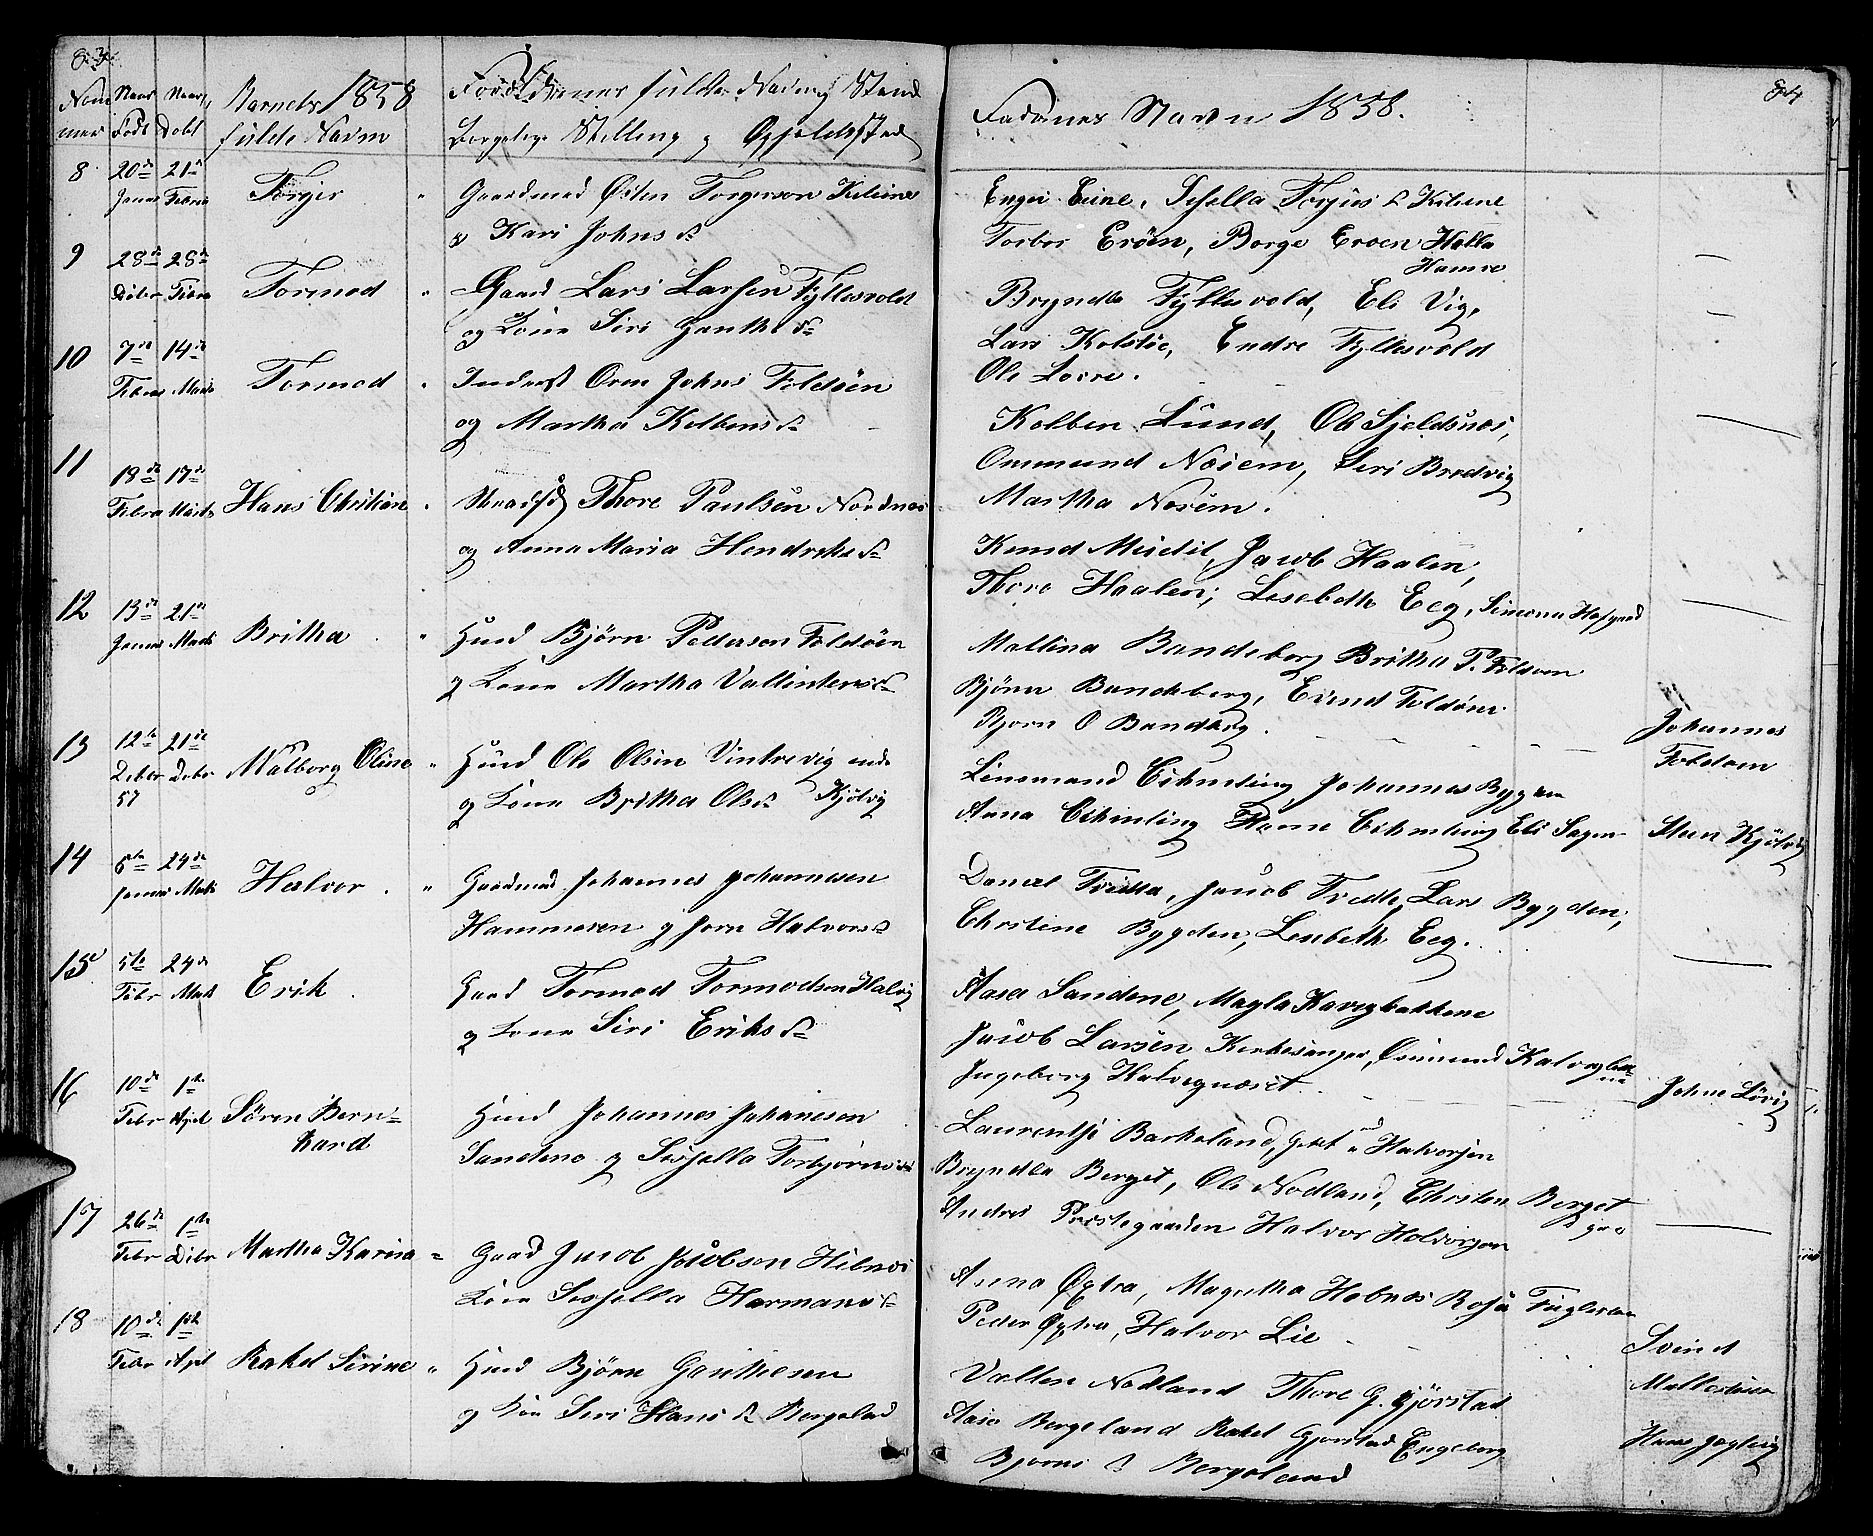 83
Num mer
Naar Født
Naar Døbt
Barnets 1858
fulde Navn
Forældrenes fulde Navn Stand
Borgelige Stilling og Opholdssted
8
20de 21de
Januar Febru
Torger
Gaardmad Østen Torgerson Kilene
og Kari Johns D
9
28de 28de
Febru
Tormod
Gaard Lars Larsen Fyllesvold
og Kone Siri Gunthe D
10
7de 14de
Febru Marts
Tormod
Inderst Orm Johns Foldøen
og Martha Kolbens D
11
18de 17de
Febru Marts
Hans Christian
Thore Paulsen Nordnes
og Anna Maria Hendriks D
12
13de 21de
Januar Marts
Britha
Huud Bjørn Pedersen Foldøen
og Kone Martha Vallentens D
13
12te 21de
Debr Debr
57
Malborg Oline
Huud Ole Olsen Vintrevig inde
og Kone Britha Ols D Kjølvig
14
6te 24de
Januar Marts
Halvor
Gaardmad Johannes Johannesen
Hammesen og Jorn Halvors D
15
5te 24de
Febr Marts
Erik
Gaard Tormod Tormodsen Halvig
og Kone Siri Eriks D
16
10de 1ste
Febr April
Søren Bern-
hard
Huud Johannes Johanesen
Sandene og Sissella Torbjørns D
17
26de 1ste
Febr Debr
Martha Karina
Gaard Jacob Jacobsen Hebnes
Kone Sissella Hermans D
18
10de 1ste
Febr April
Rakel Sirine
Huud Bjørn Gauthesen
og Kone Siri Hans D Bergeland
84
Fadernes Navn 1858.
Enger Eine, Sissella Torjers D Kilene
Torbor Erøen, Borge Eroen Helle
Hamre
Bryndle Fyllesvold, Eli Vig,
Lars Kolstøe, Endre Fyllesvold
Ole Loere.
Kolben Lund, Ole Sjeldsnes,
Ommund Nosem, Siri Bredvig
Martha Nosem.
Knud Meidel, Jacob Haalen,
Thore Haalen, Lesebeth Eeg, Simona Hofgaard
Mallina Bandeberg Britha P. Foldoen
Bjørn Bandeberg, Eivind Foldøen
Bjorn O Bandberg.
Johannes
Foldoen
Linsmand Eikmeling Johannes Bygden
Anna Eikmeling Eikmeling Eli Sagen
Steen Kjølvig
Daniel Tvedte, Jacob Tvedte, Lars Bygden,
Christine Bygden, Lesebeth Eeg.
Aasa Sandene, Magla Havigbakkene
Jacob Larsen Kirkesanger, Ommund Halvigbak
ne
Ingeborg Halvegneset
Johne Løvig
Laurentse Barkeland, Halvorsen
Bryndla Berget, Ole Nodland, Christen Berget
Andres Prestegaarden Halvor Halvorsen
Anna Øxtra, Magretha Hebnes Rosa Fugleson
Peder Øxtra, Halvor Lie
Svend
Vallen Nodland Thore G. Gjørstad
Aase Bergeland Rakel Gjorstad Engeborg
Bjorns D Bergeland